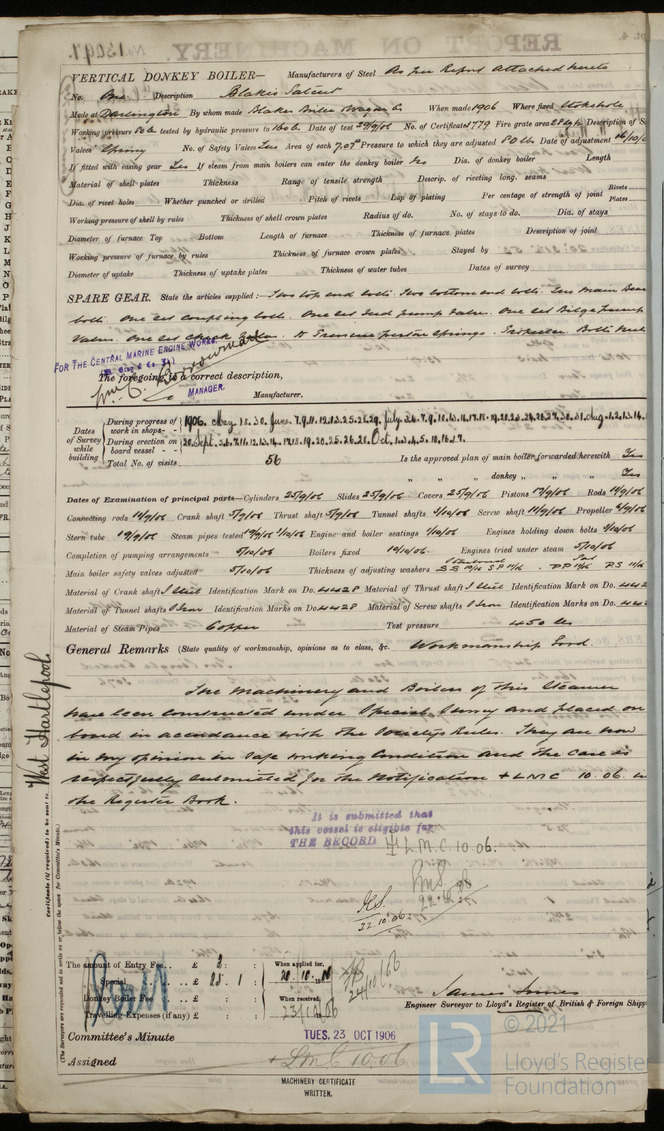 REPORT ON MACHINERY
VERTICAL DONKEY BOILER— Manufacturers of Steel As per Report Attached hereto
No. One Description Blakes Patent
Made at Darlington By whom made Blake Boiler Wagon Co When made 1906 Where fixed Stokehole
Working pressure 80 lb tested by hydraulic pressure to 160 lb Date of test 29/9/06 No. of Certificate 3779 Fire grate area 28 sq ft Description of
Valves Spring No. of Safety Valves Two Area of each 7.07 Pressure to which they are adjusted 80 lbs Date of adjustment
If fitted with easing gear Yes If steam from main boilers can enter the donkey boiler No Dia. of donkey boiler Length
Material of shell plates Thickness Range of tensile strength Descrip. of riveting long. seams
Dia. of rivet holes Whether punched or drilled Pitch of rivets Lap of plating Per centage of strength of joint Rivets
Plates
Working pressure of shell by rules Thickness of shell crown plates Radius of do. No. of stays to do. Dia. of stays
Diameter of furnace Top Bottom Length of furnace Thickness of furnace plates Description of joint
Working pressure of furnace by rules Thickness of furnace crown plates Stayed by
Diameter of uptake Thickness of uptake plates Thickness of water tubes Dates of survey
SPARE GEAR. State the articles supplied:— Two top end bolts. Two bottom end bolts. Two Main Bea
bolts. One set Coupling bolts. One set Feed pump Valves. One set Bilge Pump
Valves. One set Check Valves. Piston Springs. Bolts
FOR THE CENTRAL MARINE ENGINE WORKS.
The foregoing is a correct description,
MANAGER.
Manufacturer.
Dates of Survey while building
During progress of work in shops - - 1906. May. June. July. Aug
During erection on board vessel - - Sept. Oct.
Total No. of visits 56 Is the approved plan of main boiler forwarded herewith Yes
" " " donkey " " " Yes
Dates of Examination of principal parts—Cylinders 25/9/06 Slides 25/9/06 Covers 25/9/06 Pistons 17/9/06 Rods 14/9/06
Connecting rods 14/9/06 Crank shaft 5/9/06 Thrust shaft 5/9/06 Tunnel shafts 1/10/06 Screw shaft 11/9/06 Propeller
Stern tube 19/9/06 Steam pipes tested 1/10/06 Engine and boiler seatings 1/10/06 Engines holding down bolts 3/10/06
Completion of pumping arrangements 5/10/06 Boilers fixed 1/10/06 Engines tried under steam 5/10/06
Main boiler safety valves adjusted 5/10/06 Thickness of adjusting washers
Material of Crank shaft I Steel Identification Mark on Do. 4428 Material of Thrust shaft I Steel Identification Mark on Do.
Material of Tunnel shafts I Iron Identification Marks on Do. 4428 Material of Screw shafts I Iron Identification Marks on Do.
Material of Steam Pipes Copper Test pressure 450 lbs
General Remarks (State quality of workmanship, opinions as to class, &c. Workmanship Good.
The Machinery and Boilers of this Steamer
have been constructed under Special Survey and placed on
board in accordance with the Society's Rules. They are now
in my opinion in safe working Condition and the Case is
respectfully submitted for the Notification + LMC 10.06. in
the Register Book.
West Hartlepool
Certificate (if required) to be sent to
(The Surveyors are requested not to write on or below the space for Committee's Minute.)
It is submitted that
this vessel is eligible for
THE RECORD + L.M.C 10.06.
22.10.06
22.10.06
The amount of Entry Fee. . £ 2 : :
Special . . £ 25 . 1 :
Donkey Boiler Fee . . £ : :
Travelling Expenses (if any) £ : :
When applied for,
20.10.06
When received,
23/10/06
24/10/06
James Jones
Engineer Surveyor to Lloyd's Register of British & Foreign Shipp
Committee's Minute TUES. 23 OCT 1906
Assigned + LMC 10.06
MACHINERY CERTIFICATE
WRITTEN.
LR
© 2021
Lloyd's Register
Foundation